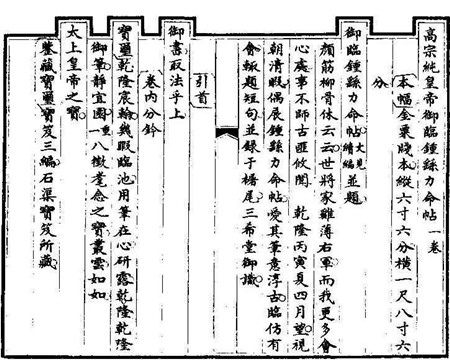 高宗純皇帝御臨鍾繇力命帖 一卷
本幅金粟牋本縱六寸六分橫一尺八寸六
分
御臨鍾繇力命帖 文見續編 並題
顏筋柳骨休云云世將家雞薄右軍而我更多會
心處事不師古匪攸聞 乾隆丙寅夏四月望視
朝清暇偶展鍾繇力命帖愛其筆意淳古臨仿有
會輒題短句並錄于幡尾三希堂御識
引首
御書取法乎上
卷內分鈐
寶璽乾隆宸翰幾暇臨池用筆在心研露乾隆乾隆
御筆靜宜園一重八徵耄念之寶叢雲如如
太上皇帝之寶
鑒藏寶璽寶笈三編石渠寶笈所藏